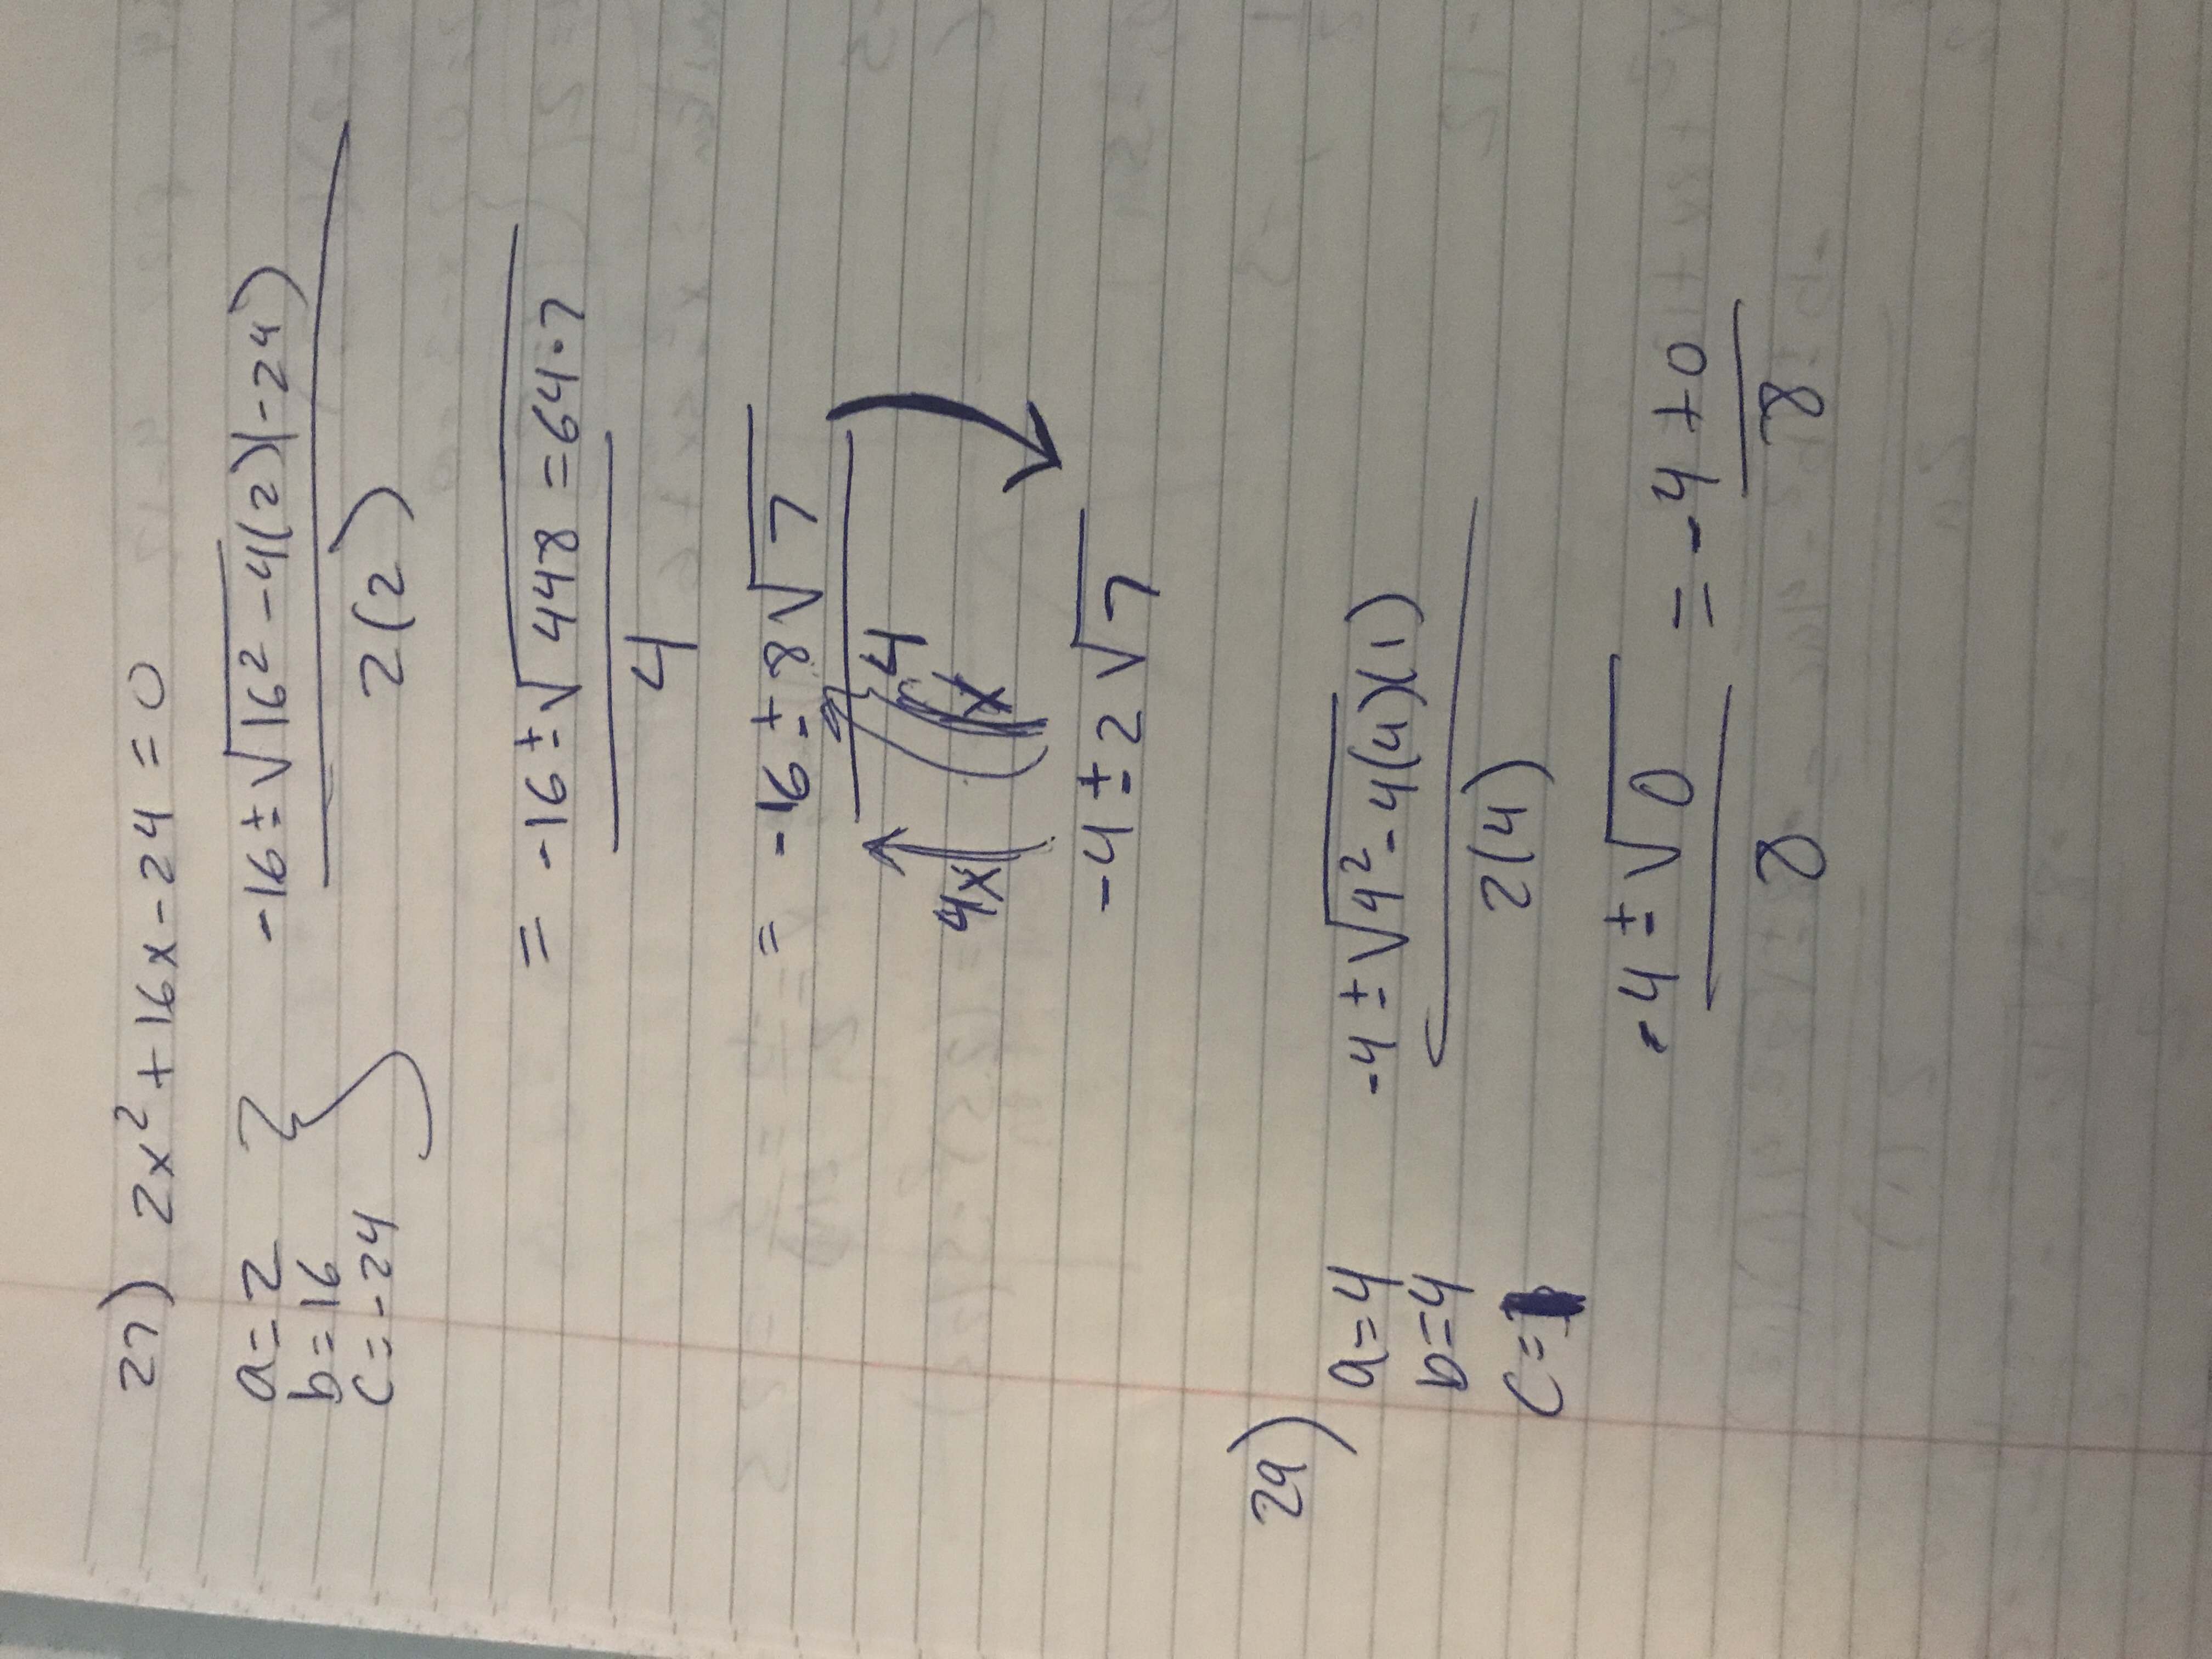 27) 2x² + 16x - 24 = 0
a = 2
b = 16
c = -24
-16 ± √16² - 4(2)(-24)
2(2)
= -16 ± √448 = 64·7
4
= -16 ± 8√7
4
4x
x
-4 ± 2√7
29)
a = 4
b = 4
c = 1
-4 ± √4² - 4(4)(1)
2(4)
-4 ± √0 = -4 + 0
8 8